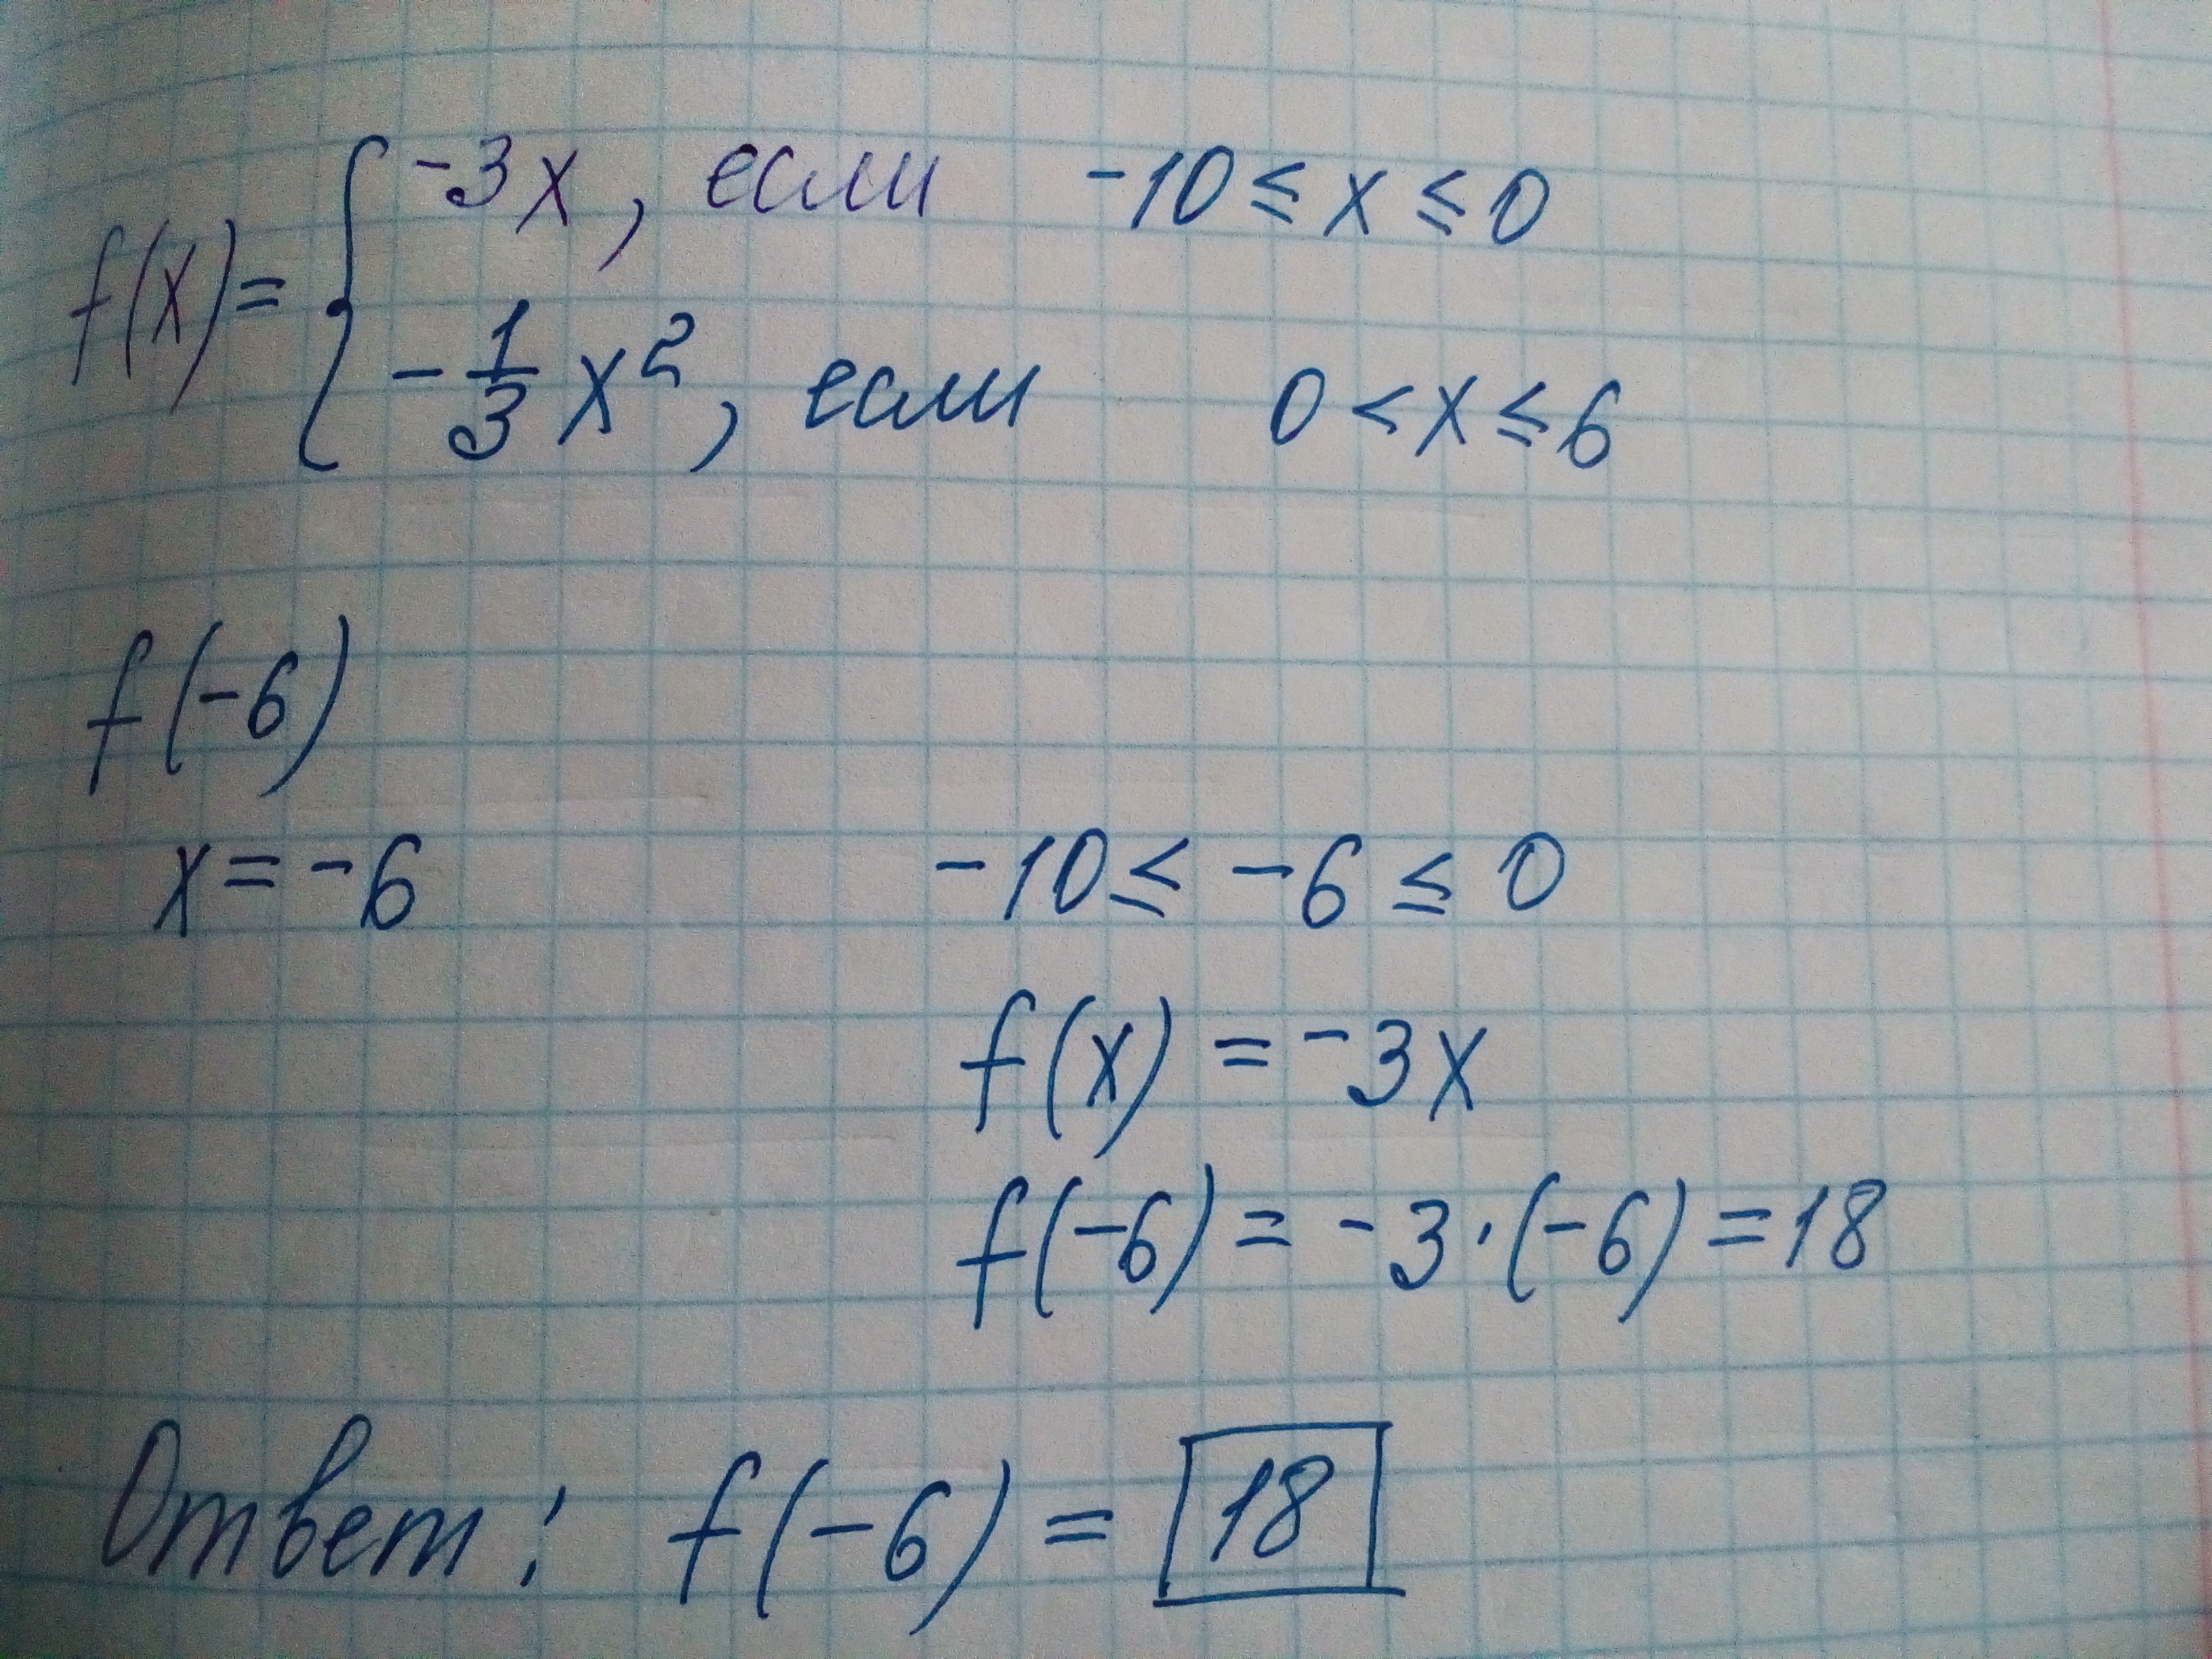 f(x) = { -3x, если -10 ≤ x ≤ 0
-1/3 x², если 0 < x ≤ 6
f(-6)
x = -6 -10 ≤ -6 ≤ 0
f(x) = -3x
f(-6) = -3·(-6) = 18
Ответ: f(-6) = 18